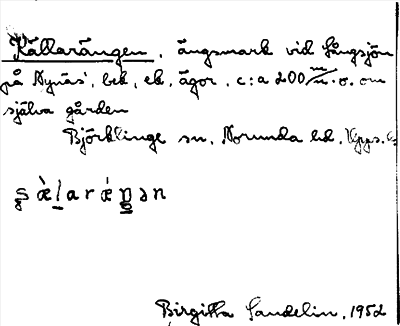 Källarängen, ängsmark vid Långsjön
på Nynäs', bek, ek, ägor, c:a 200 m n. o. om
själva gården
Björklinge sn, Norunda hd, Upps. l.
ş ὲḷarέŋən
Birgitta Sandelin, 1952